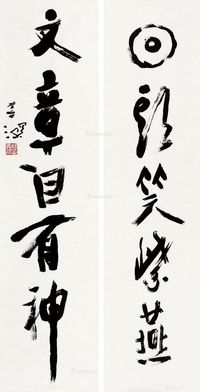 回頭笑紫燕
文章自有神